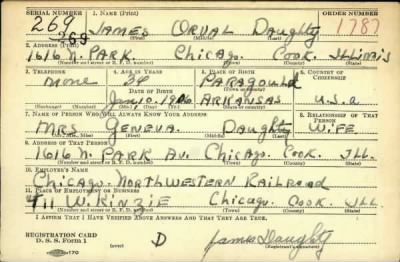 SERIAL NUMBER 1. NAME (Print) ORDER NUMBER
269 JAMES ORVAL Daughty 1787
269
2. ADDRESS (Print)
1616 N. PARK Chicago Cook ILLINOIS
3. TELEPHONE 4. AGE IN YEARS 5. PLACE OF BIRTH 6. COUNTRY OF CITIZENSHIP
none 34 PARAGOULD
DATE OF BIRTH
Jan 10. 1906 ARKANSAS U.S.a
7. NAME OF PERSON WHO WILL ALWAYS KNOW YOUR ADDRESS 8. RELATIONSHIP OF THAT PERSON
MRS GENEVA Daughty WIFE
9. ADDRESS OF THAT PERSON
1616 N. PARK Av. Chicago. Cook. ILL.
10. EMPLOYER'S NAME
Chicago. NorthWestern Railroad
11. PLACE OF EMPLOYMENT OR BUSINESS
W. KINZIE Chicago. Cook. ILL
I AFFIRM THAT I HAVE VERIFIED ABOVE ANSWERS AND THAT THEY ARE TRUE.
REGISTRATION CARD
D. S. S. Form 1 D James Daughty